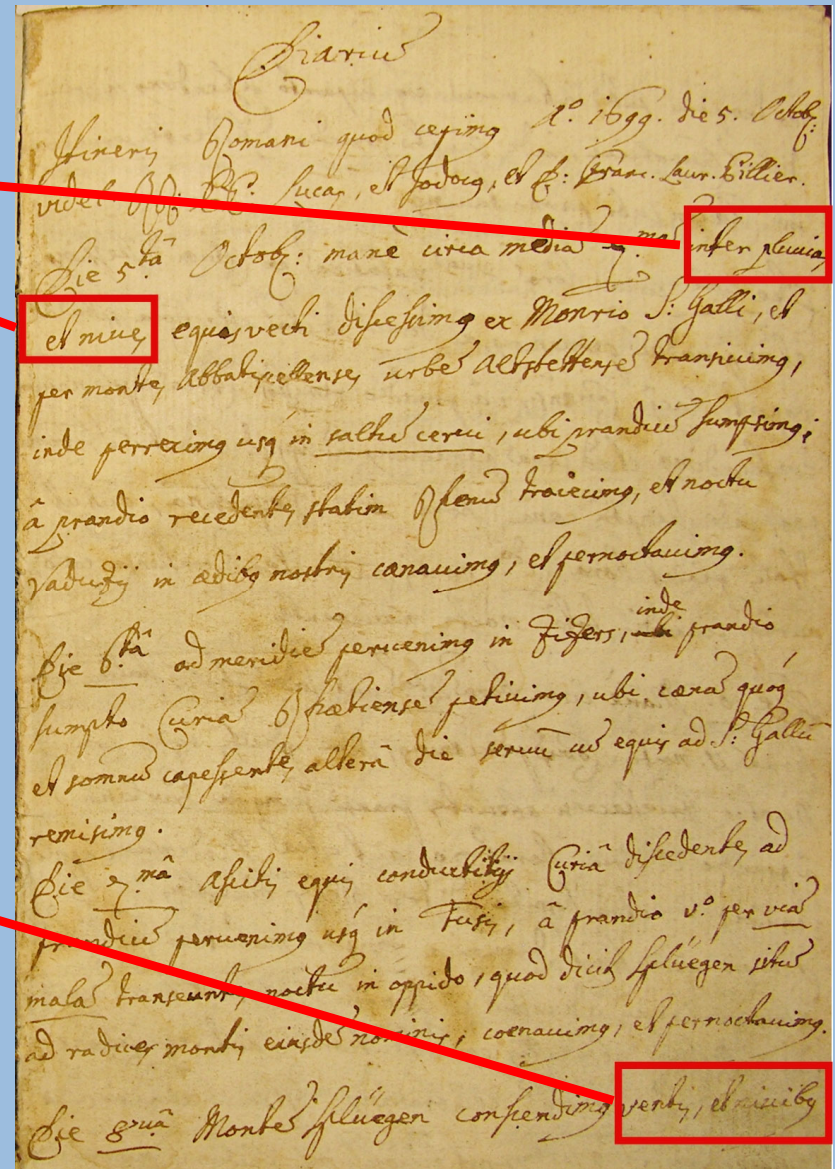 Diariũ
Itineris Romani quod cepimus Aº. 1699. die 5. Octob:
videl. RR: PP. Lucas, et Jodocus, et P: Franc. Laur. Pillier.
Die 5.tâ Octob: manè circa mediã 7.mã inter pluvias,
et nives equis vecti discessimus ex Monrio S: Galli, et
per montes Abbatiscellenses urbẽ Altstettensẽ transivimus,
inde perreximus usq in saltũ cervi, ubi prandiũ sumpsimus;
â prandio recedentes statim Rhenũ traiecimus, et noctu
Vadutzij in ædibus nostris cænavimus, et pernoctavimus.
Die 6.tâ ad meridiẽ pervenimus in Zizers, ubi inde prandio
sumpto Curiã Rhætiensẽ petivimus, ubi cænã quoq
et somnũ capessentes alterâ die servũ cũ equis ad S: Gallũ
remisimus.
Die 7.mâ Asciti equis conductitijs Curiâ discedentes ad
prandiũ pervenimus usq in Tusis, â prandio vº. per viã
malã transeuntes, noctu in oppido, quod dicit Splüegen sitũ
ad radices montis eiusdẽ nominis, coenavimus, et pernoctavimus.
Die 8.vâ Montẽ Splüegen conscendimus ventis, et nivibus